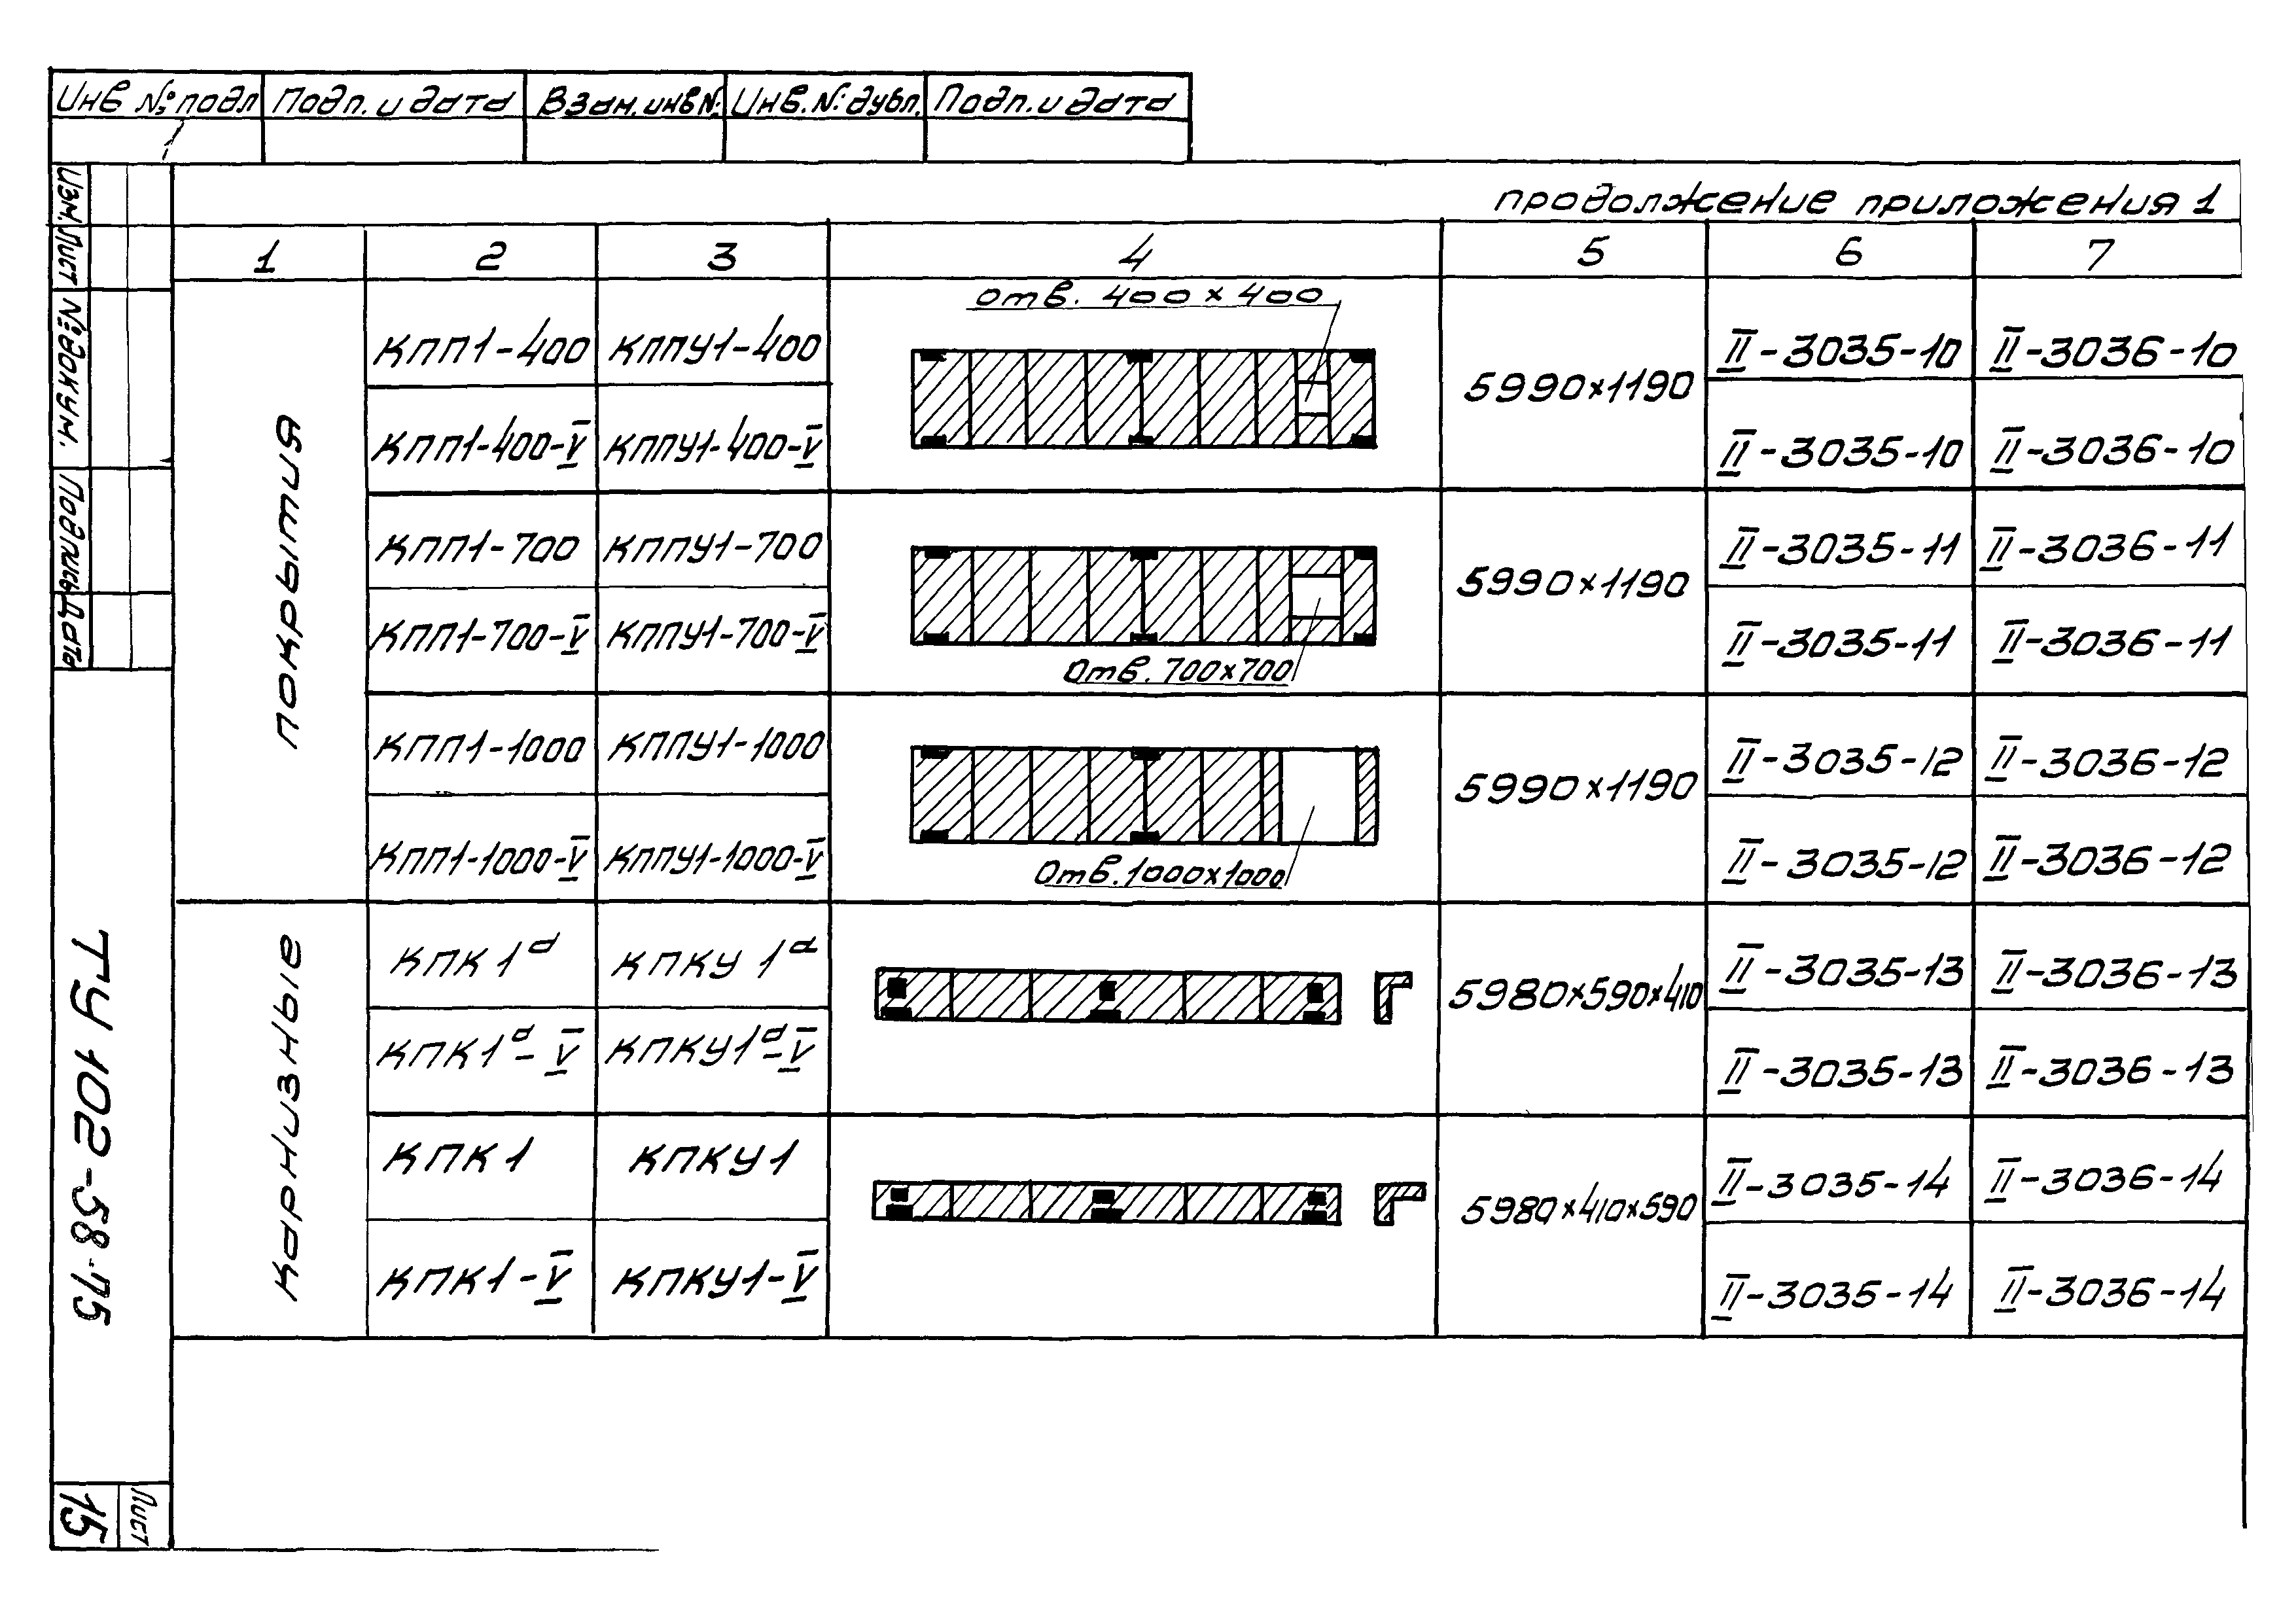 Инв № подл Подп. и дата Взам. инв №: Инв. №: дубл. Подп. и дата
продолжение приложения 1
1 2 3 4 5 6 7
покрытия
КПП1-400 КППУ1-400 отв. 400 х 400 5990х1190 II-3035-10 II-3036-10
КПП1-400-V КППУ1-400-V II-3035-10 II-3036-10
КПП1-700 КППУ1-700 5990х1190 II-3035-11 II-3036-11
КПП1-700-V КППУ1-700-V Отв. 700х700 II-3035-11 II-3036-11
КПП1-1000 КППУ1-1000 5990х1190 II-3035-12 II-3036-12
КПП1-1000-V КППУ1-1000-V Отв. 1000х1000 II-3035-12 II-3036-12
Карнизные
КПК 1а КПКУ 1а 5980х590х410 II-3035-13 II-3036-13
КПК1а-V КПКУ1а-V II-3035-13 II-3036-13
КПК1 КПКУ1 5980х410х590 II-3035-14 II-3036-14
КПК1-V КПКУ1-V II-3035-14 II-3036-14
Изм. Лист №: докум. Подпись Дата
ТУ 102-58-75
Лист
15